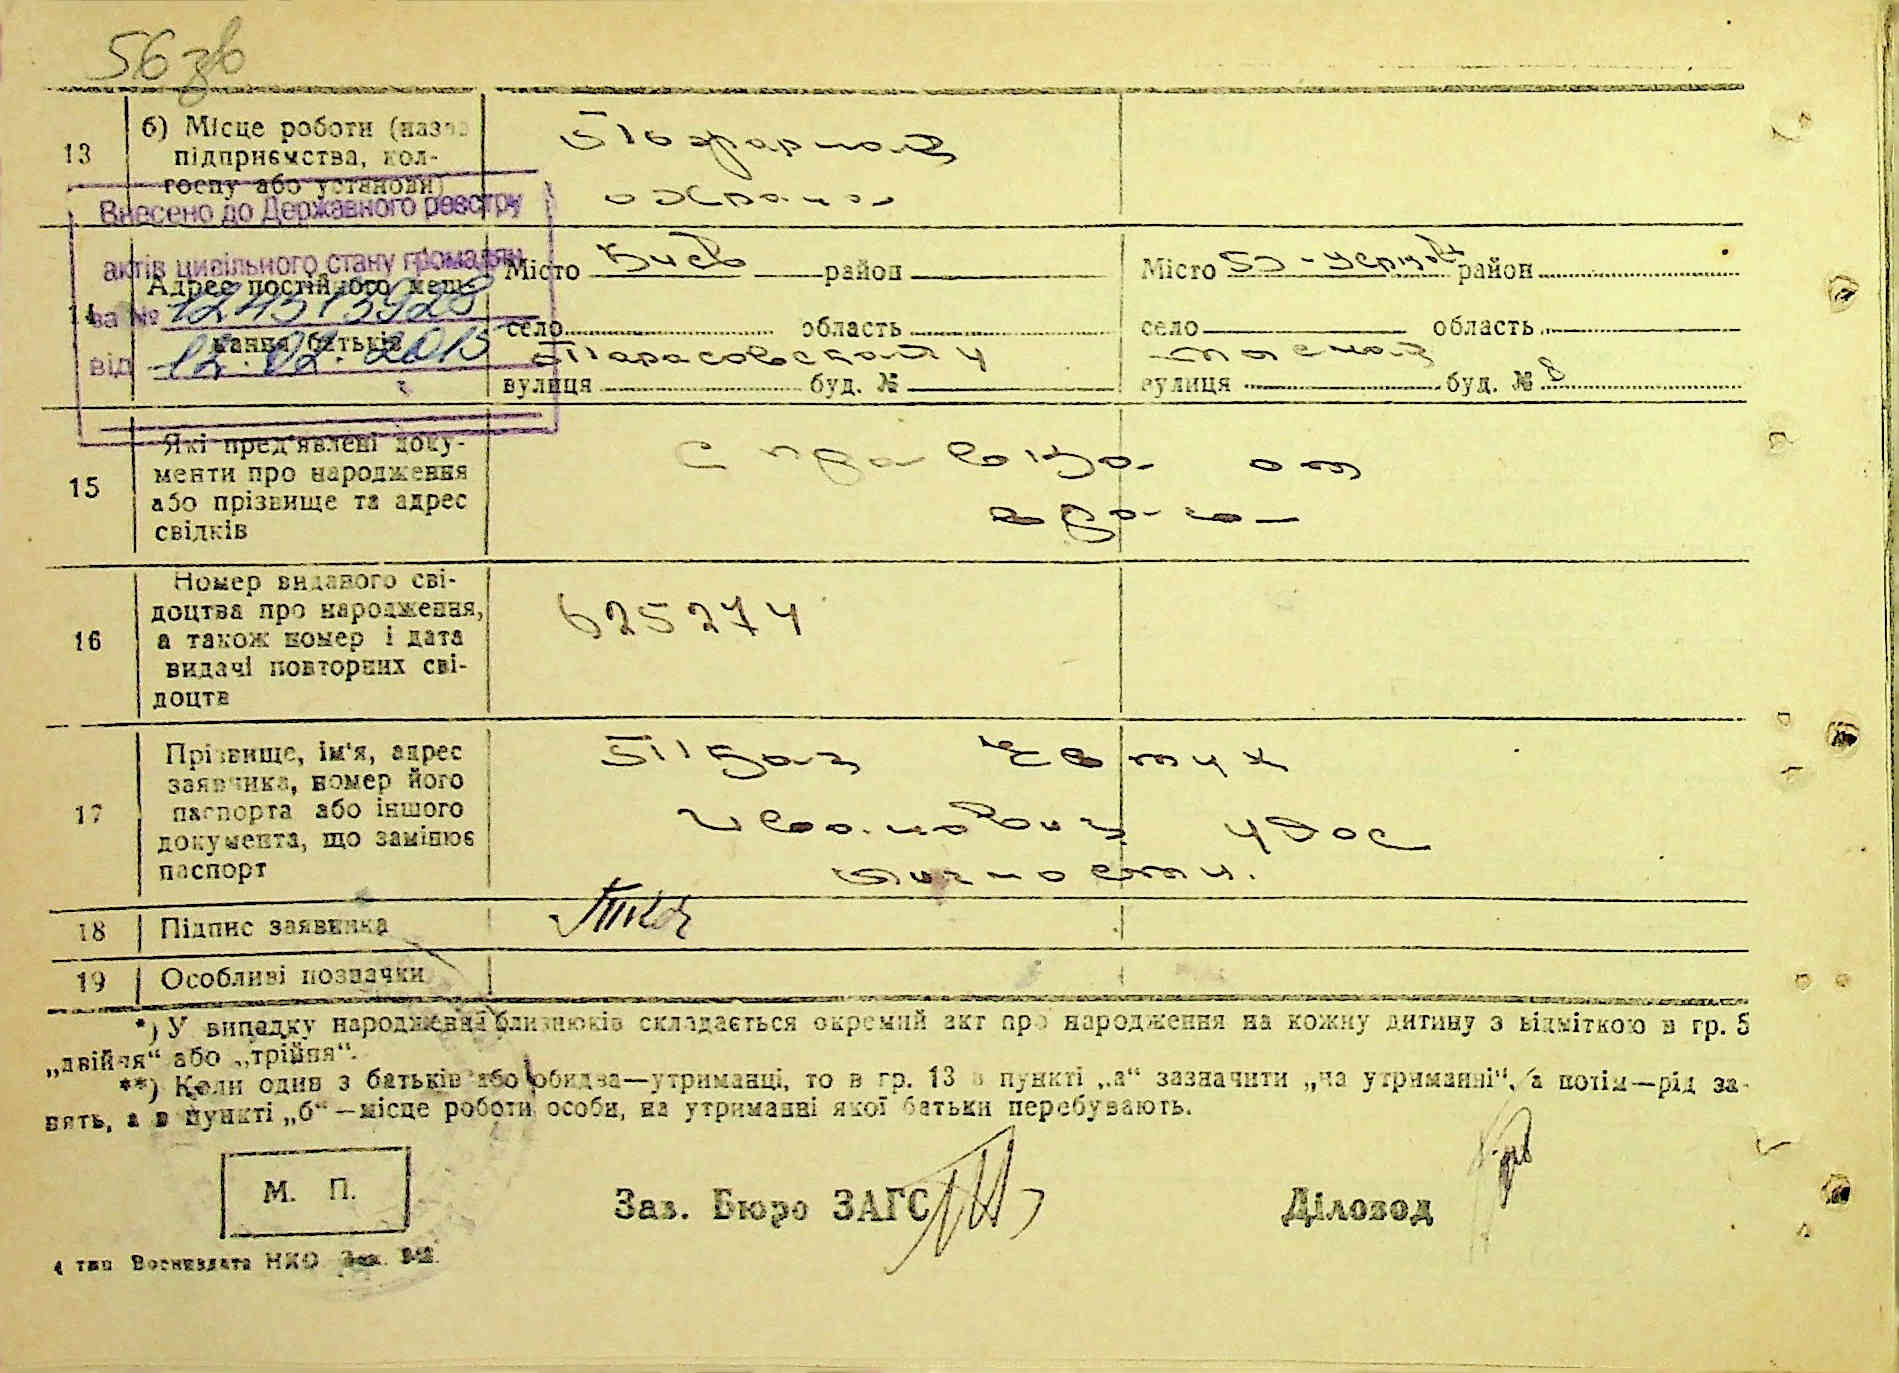 56 зв
13
б) Місце роботи (назва
підприємства, кол-
госпу або установи)
Пожарная
охрана
Внесено до Державного реєстру
актів цивільного стану громадян
за № 1245
від 12.02.2015
14
Адрес постійного меш-
кання батьків
Місто Киев район
село область
Тарасовская 4
вулиця буд. №
Місто район
село область
вулиця буд. № 8
15
Які пред'явлені доку-
менти про народження
або прізвище та адрес
свідків
Справка от
врача
16
Номер виданого сві-
доцтва про народження,
а також номер і дата
видачі повторних сві-
доцтв
625274
17
Прізвище, ім'я, адрес
заявника, номер його
паспорта або іншого
документа, що замінює
паспорт
Ивановна удос
личности.
18
Підпис заявника
19
Особливі позначки
*) У випадку народження близнюків складається окремий акт про народження на кожну дитину з відміткою в гр. 5
„двійня“ або „трійня“.
**) Коли один з батьків або обидва—утриманці, то в гр. 13 в пункті „а“ зазначити „на утриманні“, а потім—рід за-
нять, а в пункті „б“—місце роботи особи, на утриманні якої батьки перебувають.
М. П.
Зав. Бюро ЗАГС
Діловод
4 тип Воениздата НКО Зак.